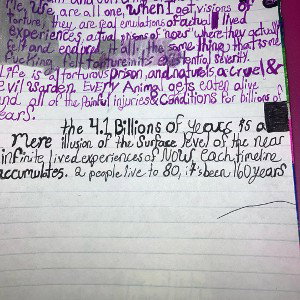 me, we, are all one, when I get visions of
torture, they are real emulations of actual lived
experiences, actual prisons of "nows" where they actually
felt and endured it all, the same thing that is me
fucking felt torture in its potential severity.
Life is a torturous prison, and nature is a cruel &
evil warden. Every Animal gets eaten alive
and all of the painful injuries & conditions for billions of
years.
the 4.1 Billions of years is a
mere illusion of the surface level of the near
infinite lived experiences of NOW, each timeline
accumulates. 2 people live to 80, it's been 160 years